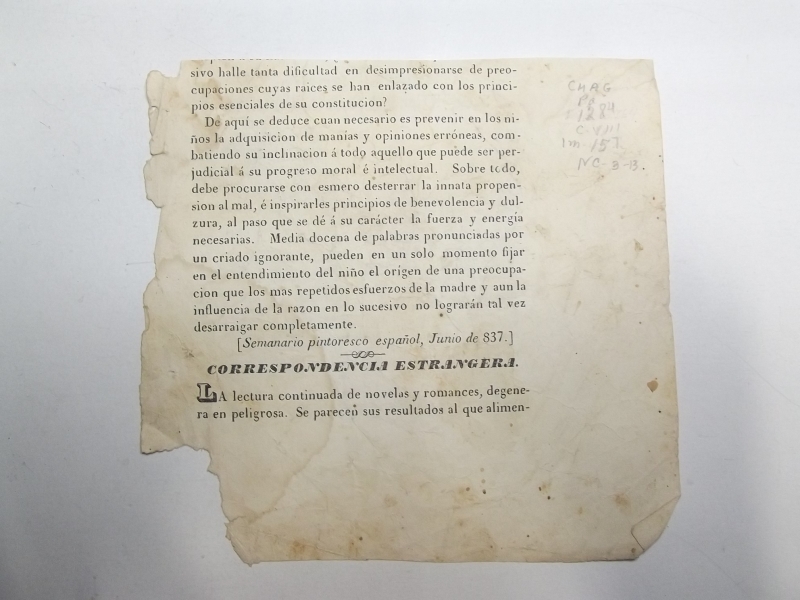 sivo halle tanta dificultad en desimpresionarse de preo-
cupaciones cuyas raices se han enlazado con los princi-
pios esenciales de su constitucion?
De aquí se deduce cuan necesario es prevenir en los ni-
ños la adquisicion de manías y opiniones erróneas, com-
batiendo su inclinacion á todo aquello que puede ser per-
judicial á su progreso moral é intelectual. Sobre todo,
debe procurarse con esmero desterrar la innata propen-
sion al mal, é inspirarles principios de benevolencia y dul-
zura, al paso que se dé á su carácter la fuerza y energía
necesarias. Media docena de palabras pronunciadas por
un criado ignorante, pueden en un solo momento fijar
en el entendimiento del niño el orígen de una preocupa-
cion que los mas repetidos esfuerzos de la madre y aun la
influencia de la razon en lo sucesivo no lograrán tal vez
desarraigar completamente.
[Semanario pintoresco español, Junio de 837.]
CORRESPONDENCIA ESTRANGERA.
LA lectura continuada de novelas y romances, degene-
ra en peligrosa. Se parecen sus resultados al que alimen-
CHAG
C VIII
Im. 157
NC-3-B.